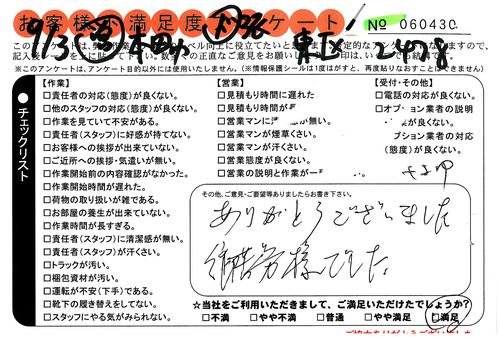 お客様 満足度 アンケート!
No 060430
9/3
2478
このアンケートは、
※このアンケートは、アンケート目的以外には使用いたしません。(※情報保護シールは1度はがすと、再度貼りなおすことはできません)
チェックリスト
【作業】
□責任者の対応(態度)が良くない。
□他のスタッフの対応(態度)が良くない。
□作業を見ていて不安がある。
□責任者(スタッフ)に好感が持てない。
□お客様への挨拶が出来ていない。
□ご近所への挨拶・気遣いが無い。
□作業開始前の内容確認がなかった。
□作業開始時間が遅れた。
□荷物の取り扱いが雑である。
□お部屋の養生が出来ていない。
□作業時間が長すぎる。
□責任者(スタッフ)に清潔感が無い。
□責任者(スタッフ)が汗くさい。
□トラックが汚い。
□梱包資材が汚い。
□運転が不安(下手)である。
□靴下の履き替えをしてない。
□スタッフにやる気がみられない。
【営業】
□見積もり時間に遅れた
□見積もり時間が
□営業マンに が無い。
□営業マンが煙草くさい。
□営業マンが汗くさい。
□営業態度が良くない。
□営業の説明と作業が
【受付・その他】
□電話の対応が良くない。
□オプション業者の説明
が良くない。
プション業者の対応
(態度)が良くない。
その他、ご意見・ご要望等ありましたらお書き下さい。
ありがとうございました
御苦労様でした。
☆当社をご利用いただきまして、ご満足いただけたでしょうか?
□不満 □やや不満 □普通 □やや満足 □満足